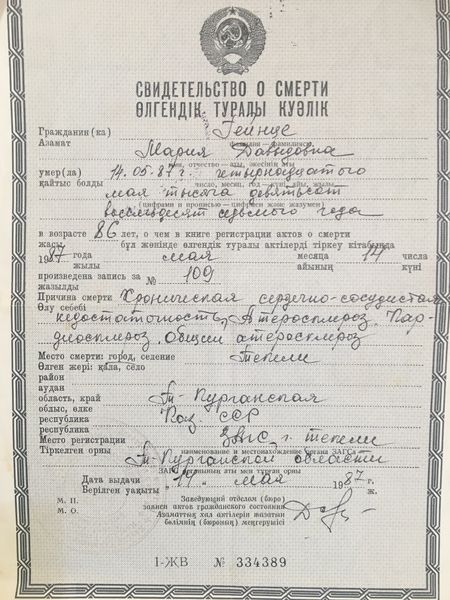 СВИДЕТЕЛЬСТВО О СМЕРТИ
ӨЛГЕНДІК ТУРАЛЫ КУӘЛІК
Гражданин(ка) Гейнце
Азамат фамилия—фамилиясы
Мария Давыдовна
имя, отчество—аты, әкесінің аты
умер(ла) 14.05.87 г. четырнадцатого
қайтыс болды число, месяц, год—күні, айы, жылы
мая тысяча девятьсот
(цифрами и прописью—цифрмен және жазумен)
восемьдесят седьмого года
в возрасте 86 лет, о чем в книге регистрации актов о смерти
жасы бұл жөнінде өлгендік туралы актілерді тіркеу кітабында
1987 года мая месяца 14 числа
жылы айының күні
произведена запись за № 109
жазылды
Причина смерти Хроническая сердечно-сосудистая
Өлу себебі
недостаточность, Атеросклероз. Кар-
диосклероз. Общий атеросклероз
Место смерти: город, селение Текели
Өлген жері: қала, село
район
аудан
область, край Т-Курганская
облыс, өлке
республика Каз. ССР
республика
Место регистрации ЗАГС г. Текели
Тіркелген орны наименование и местонахождение органа ЗАГСа
Т-Курганской области
ЗАГС органының аты мен тұрған орны
Дата выдачи "14" мая 1987 г.
Берілген уақыты ж.
М. П. Заведующий отделом (бюро)
М. О. записи актов гражданского состояния
Азаматтық хал актілерін жазатын
бөлімнің (бюроның) меңгерушісі
I-ЖВ № 334389